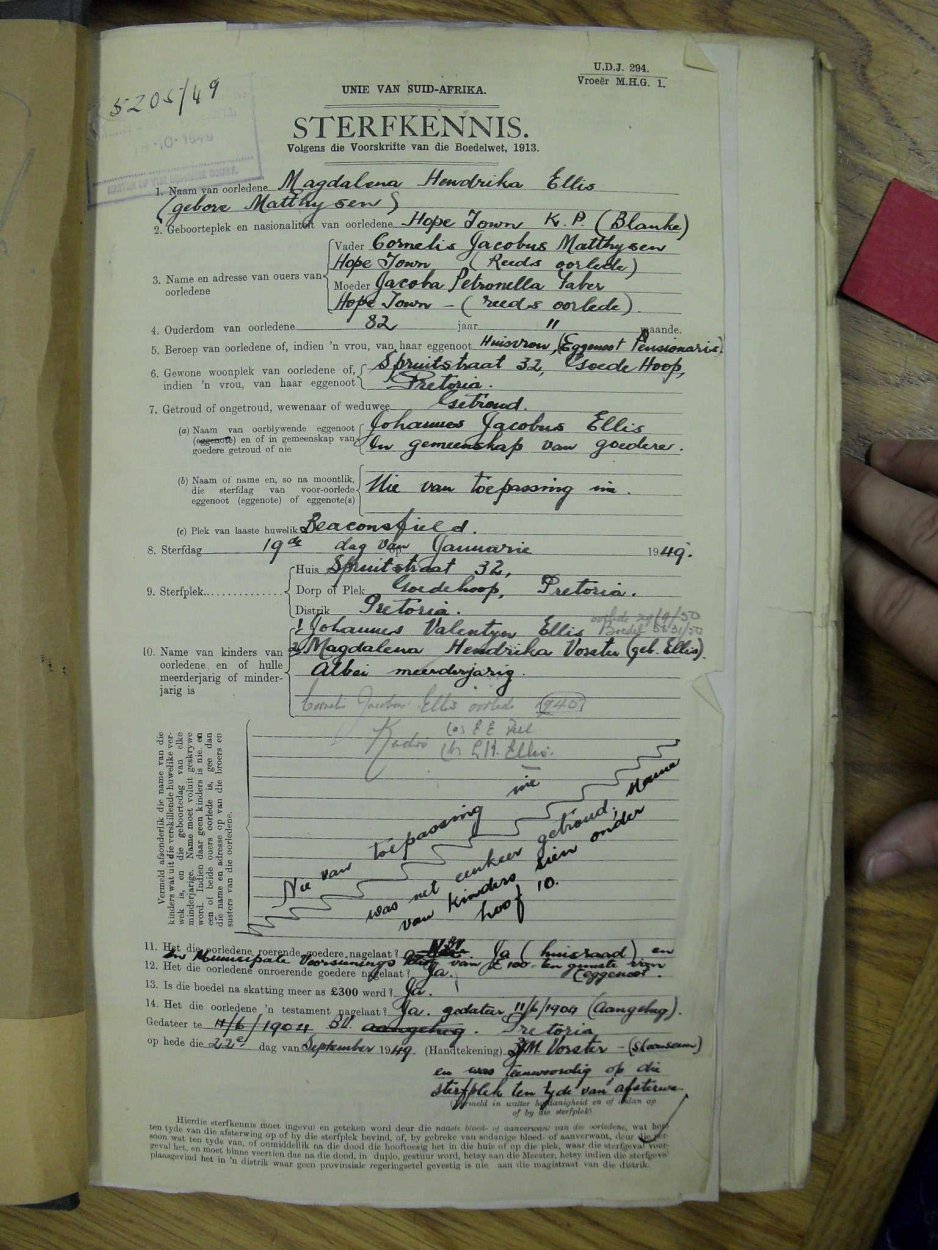 5205/49
U.D.J. 294.
Vroeër M.H.G. 1.
UNIE VAN SUID-AFRIKA.
STERFKENNIS.
Volgens die Voorskrifte van die Boedelwet, 1913.
1. Naam van oorledene Magdalena Hendrika Ellis
(gebore Matthysen)
2. Geboorteplek en nasionaliteit van oorledene Hope Town K.P. (Blanke)
3. Name en adresse van ouers van oorledene
Vader Cornelis Jacobus Matthysen
Hope Town (Reeds oorlede)
Moeder Jacoba Petronella Faber
Hope Town - (reeds oorlede)
4. Ouderdom van oorledene 82 jaar " maande.
5. Beroep van oorledene of, indien 'n vrou, van haar eggenoot Huisvrou (Eggenoot Pensionaris.
6. Gewone woonplek van oorledene of, Spruitstraat 32, Goede Hoop,
indien 'n vrou, van haar eggenoot Pretoria.
7. Getroud of ongetroud, wewenaar of weduwee Getroud.
(a) Naam van oorblywende eggenoot Johannes Jacobus Ellis
(eggenote) en of in gemeenskap van In gemeenskap van goedere.
goedere getroud of nie
(b) Naam of name en, so na moontlik,
die sterfdag van voor-oorlede Nie van toepassing nie.
eggenoot (eggenote) of eggenote(s)
(c) Plek van laaste huwelik Beaconsfield.
8. Sterfdag 19de dag van Januarie 1949.
9. Sterfplek
Huis Spruitstraat 32,
Dorp of Plek Goedehoop, Pretoria.
Distrik Pretoria.
1. Johannes Valentyn Ellis
Boedel
10. Name van kinders van 2. Magdalena Hendrika Vorster (geb. Ellis).
oorledene en of hulle Albei meerderjarig.
meerderjarig of minder-
jarig is
Cornelis Jacobus Ellis oorlede 1945
(b) Ellis.
Vermeld afsonderlik die name van die
kinders wat uit die verskillende huwelike ver-
wek is, en die geboortedag van elke
minderjarige. Name moet voluit geskrywe
word. Indien daar geen kinders is nie en
een of beide ouers oorlede is, gee dan
die name en adresse op van die broers en
susters van die oorledene.
Nie van toepassing nie
was net eenkeer getroud; Name
van kinders sien onder
hoof 10.
11. Het die oorledene roerende goedere nagelaat? Ja (huisraad) en
en Municipale Voorsienings van £100 ten gunste van
12. Het die oorledene onroerende goedere nagelaat? Ja. (eggenoot.
13. Is die boedel na skatting meer as £300 werd? Ja.
14. Het die oorledene 'n testament nagelaat? Ja. gedateer 11/6/1904 (Aangeheg).
Gedateer te 11/6/1904 aangeheg. Pretoria
op hede die 22e dag van September 1949. (Handtekening) M. Vorster - (Skoonseun)
en was teenwoordig op die
sterfplek ten tyde van afsterwe.
(Vermeld in watter hoedanigheid en of indan op
of by die sterfplek)
Hierdie sterfkennis moet ingevul en geteken word deur die naaste bloed- of aanverwant van die oorledene, wat hom
ten tyde van die afsterwing op of by die sterfplek bevind, of, by gebreke van sodanige bloed- of aanverwant, deur die per-
soon wat ten tyde van, of onmiddellik na die dood die hooftoesig het in die huis of op die plek, waar die sterfgeval voor-
geval het, en moet binne veertien dae na die dood, in duplo, gestuur word, hetsy aan die Meester, hetsy indien die sterfgeval
plaasgevind het in 'n distrik waar geen provinsiale regeringsetel gevestig is nie, aan die magistraat van die distrik.